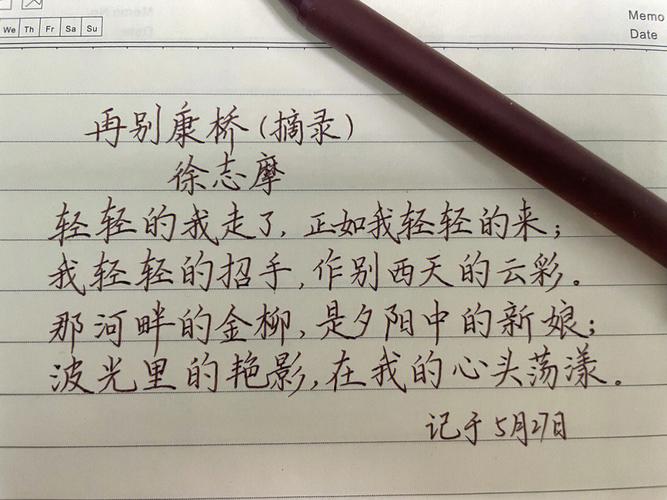 Memo
We Th Fr Sa Su
Date
再别康桥(摘录)
徐志摩
轻轻的我走了,正如我轻轻的来;
我轻轻的招手,作别西天的云彩。
那河畔的金柳,是夕阳中的新娘;
波光里的艳影,在我的心头荡漾。
记于5月27日